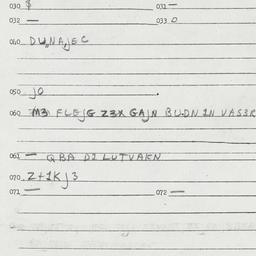 030 $ 031 —
032 — 033 0
040 DUNAJEC
050 JO
060 M3 FLEJG Z3X GAJN BUDN IN VAS3R
061 — QBA DI LUTVAKN
070 2+1KJ3
071 — 072 —